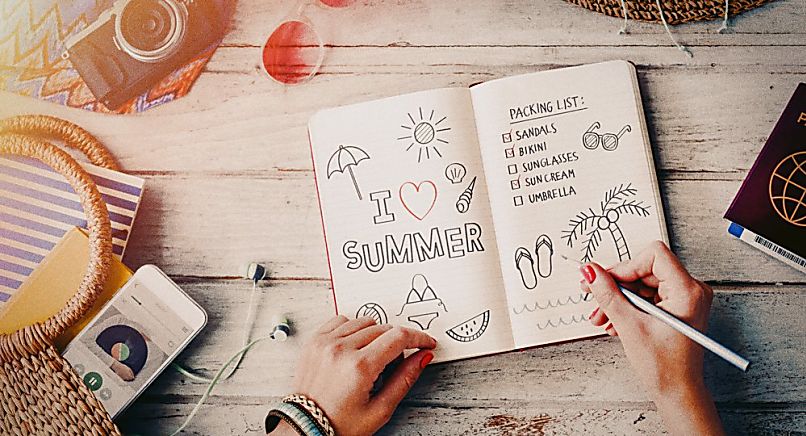 I ♡
SUMMER
PACKING LIST:
☑ SANDALS
☑ BIKINI
☐ SUNGLASSES
☑ SUN CREAM
☐ UMBRELLA